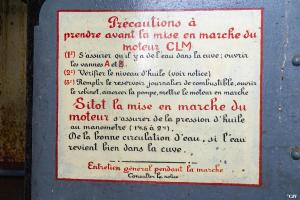 Précautions à
prendre avant la mise en marche du
moteur CLM
(1º) S'assurer qu'il y a de l'eau dans la cuve; ouvrir
les vannes A et B.
(2º) Vérifier le niveau d'huile (voir notice)
(3º) Remplir le réservoir journalier de combustible, ouvrir
le robinet, amorcer la pompe, mettre le moteur en marche
Sitot la mise en marche du
moteur s'assurer de la pression d'huile
au manomètre
De la bonne circulation d'eau, si l'eau
revient bien dans la cuve.
Entretien général pendant la marche
Consulter la notice